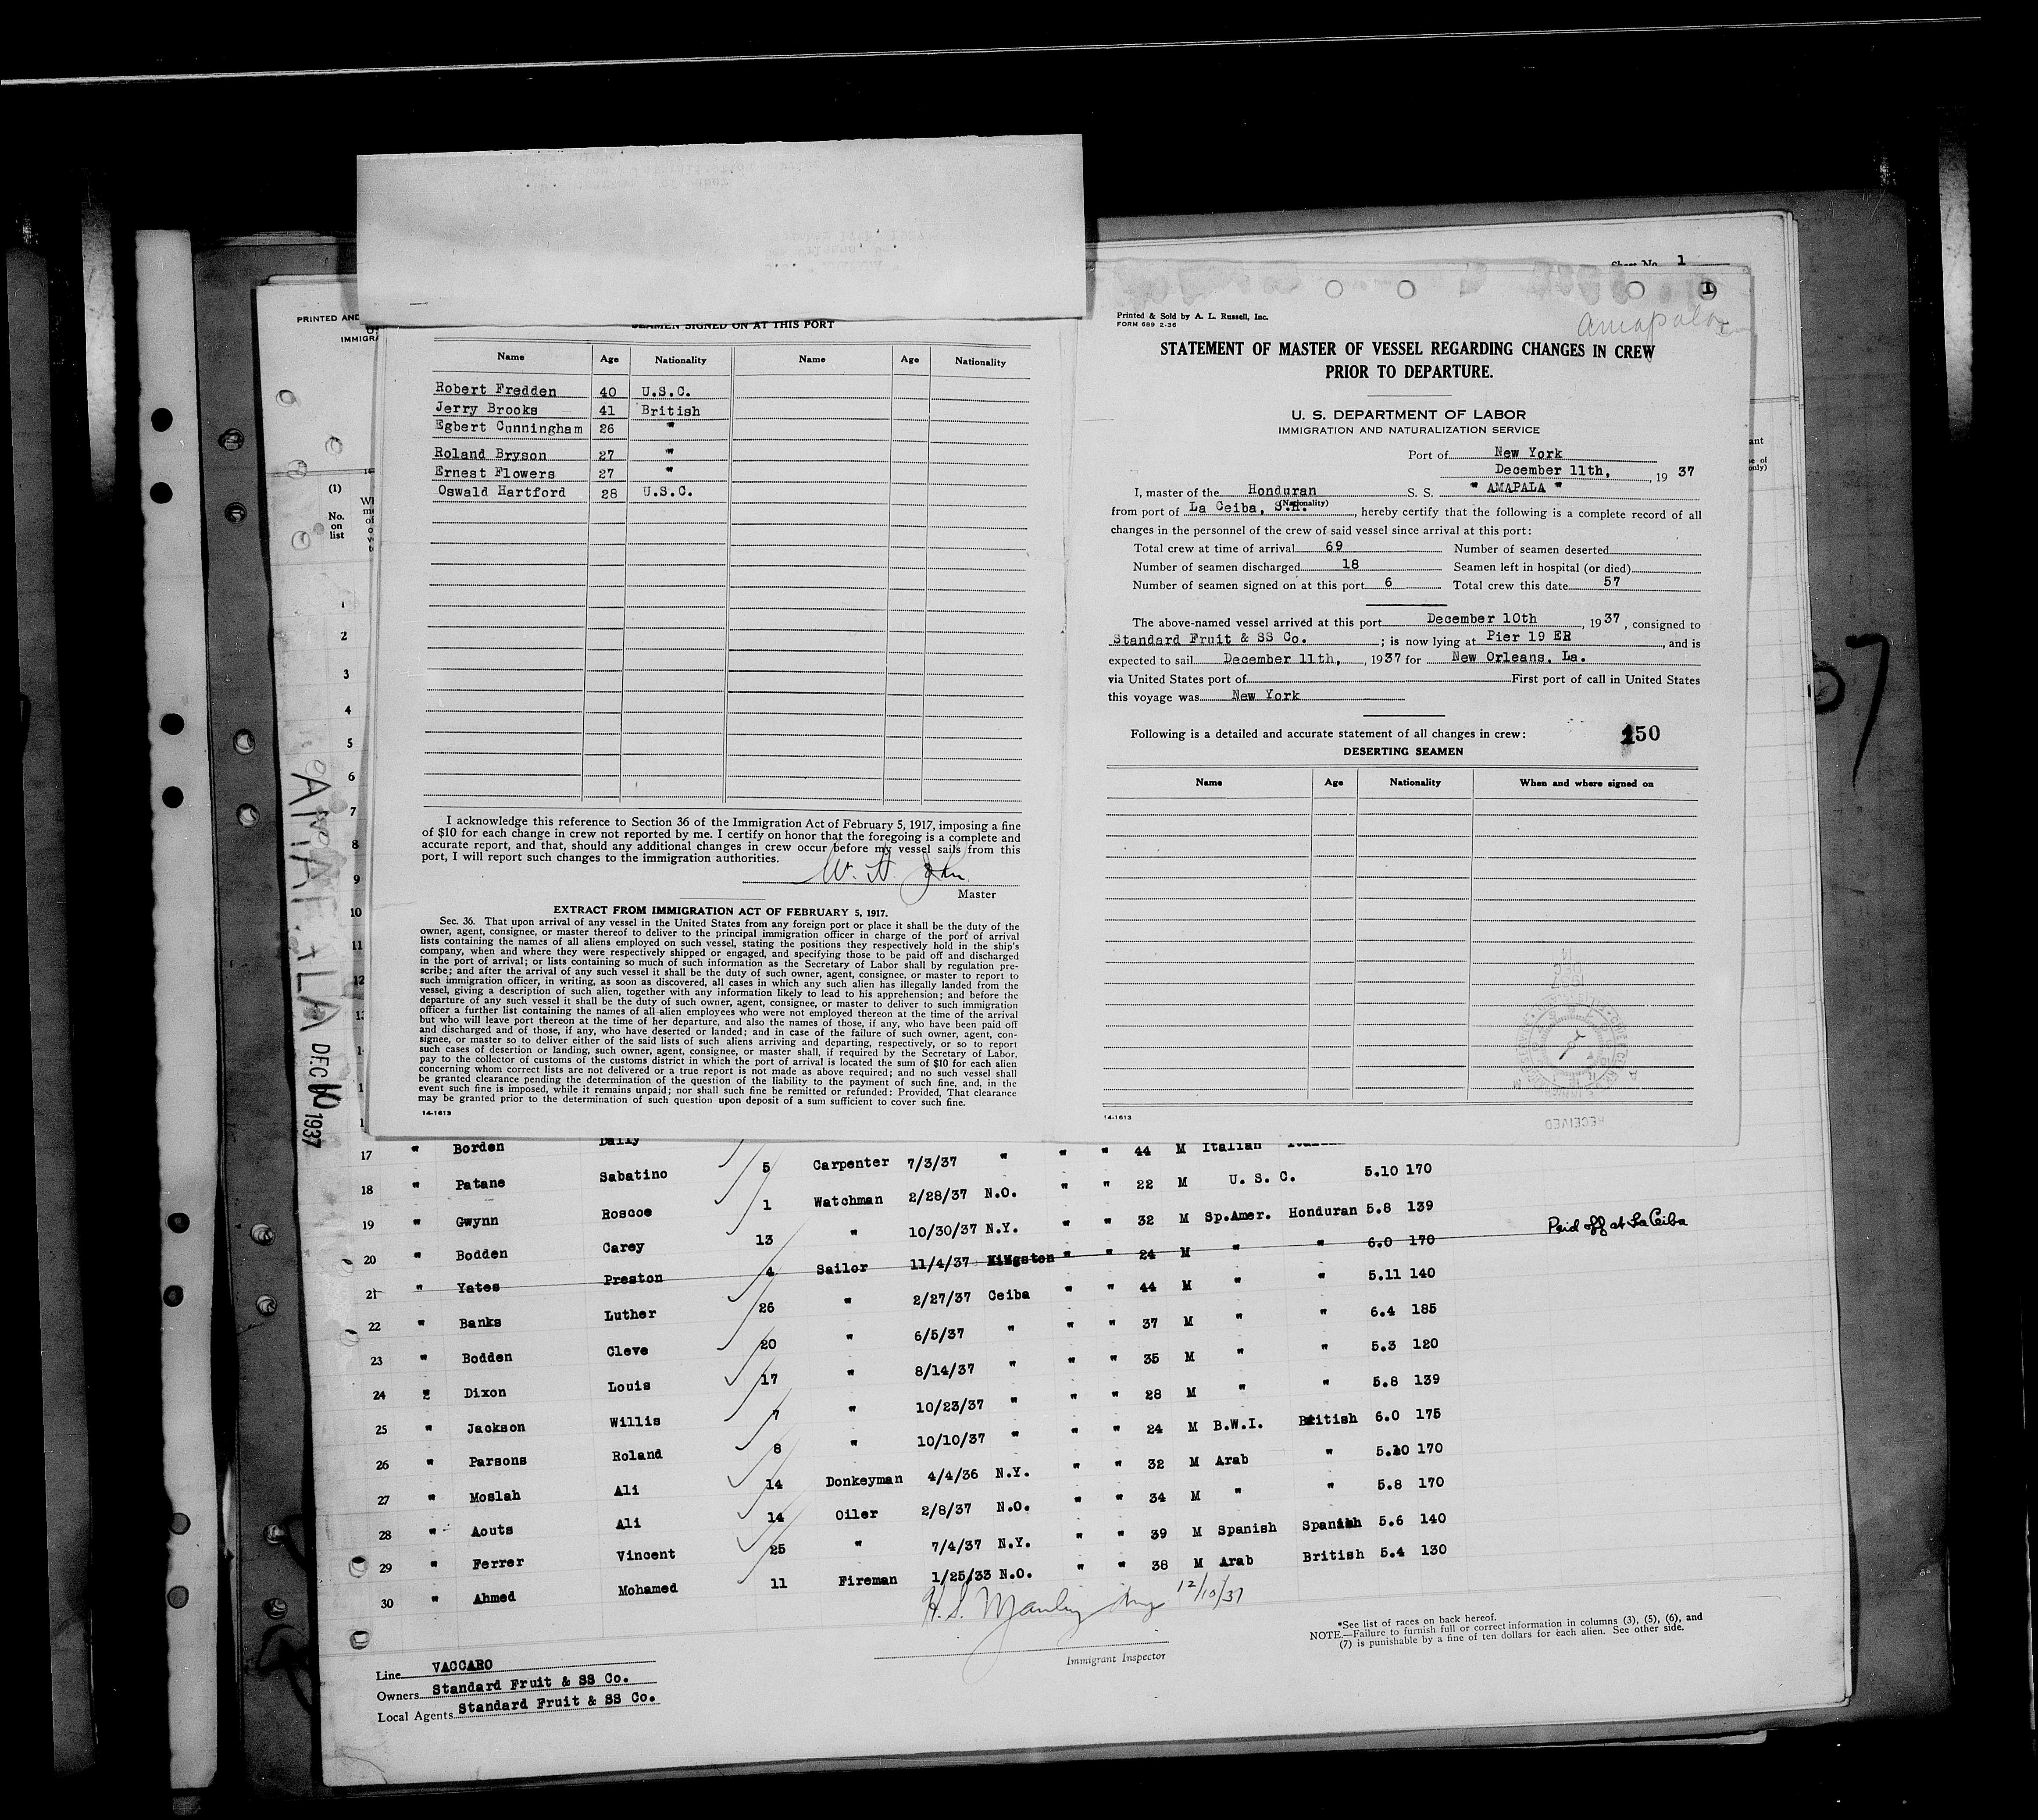 SEAMEN SIGNED ON AT THIS PORT
Name Age Nationality Name Age Nationality
Robert Fredden 40 U.S.C.
Jerry Brooks 41 British
Egbert Cunningham 26 "
Roland Bryson 27 "
Ernest Flowers 27 "
Oswald Hartford 28 U.S.C.
I acknowledge this reference to Section 36 of the Immigration Act of February 5, 1917, imposing a fine
of $10 for each change in crew not reported by me. I certify on honor that the foregoing is a complete and
accurate report, and that, should any additional changes in crew occur before my vessel sails from this
port, I will report such changes to the immigration authorities.
W. H. John
Master
EXTRACT FROM IMMIGRATION ACT OF FEBRUARY 5, 1917.
Sec. 36. That upon arrival of any vessel in the United States from any foreign port or place it shall be the duty of the
owner, agent, consignee, or master thereof to deliver to the principal immigration officer in charge of the port of arrival
lists containing the names of all aliens employed on such vessel, stating the positions they respectively hold in the ship's
company, when and where they were respectively shipped or engaged, and specifying those to be paid off and discharged
in the port of arrival; or lists containing so much of such information as the Secretary of Labor shall by regulation pre-
scribe; and after the arrival of any such vessel it shall be the duty of such owner, agent, consignee, or master to report to
such immigration officer, in writing, as soon as discovered, all cases in which any such alien has illegally landed from the
vessel, giving a description of such alien, together with any information likely to lead to his apprehension; and before the
departure of any such vessel it shall be the duty of such owner, agent, consignee, or master to deliver to such immigration
officer a further list containing the names of all alien employees who were not employed thereon at the time of the arrival
but who will leave port thereon at the time of her departure, and also the names of those, if any, who have been paid off
and discharged and of those, if any, who have deserted or landed; and in case of the failure of such owner, agent, con-
signee, or master so to deliver either of the said lists of such aliens arriving and departing, respectively, or so to report
such cases of desertion or landing, such owner, agent, consignee, or master shall, if required by the Secretary of Labor,
pay to the collector of customs of the customs district in which the port of arrival is located the sum of $10 for each alien
concerning whom correct lists are not delivered or a true report is not made as above required; and no such vessel shall
be granted clearance pending the determination of the question of the liability to the payment of such fine, and, in the
event such fine is imposed, while it remains unpaid; nor shall such fine be remitted or refunded: Provided, That clearance
may be granted prior to the determination of such question upon deposit of a sum sufficient to cover such fine.
14-1613
Sheet No. 1
1
Printed & Sold by A. L. Russell, Inc.
FORM 689 2-36
Amapala
STATEMENT OF MASTER OF VESSEL REGARDING CHANGES IN CREW
PRIOR TO DEPARTURE.
U. S. DEPARTMENT OF LABOR
IMMIGRATION AND NATURALIZATION SERVICE
Port of New York
December 11th, , 19 37
I, master of the Honduran S. S. " AMAPALA "
(Nationality)
from port of La Ceiba, S.H. , hereby certify that the following is a complete record of all
changes in the personnel of the crew of said vessel since arrival at this port:
Total crew at time of arrival 69 Number of seamen deserted
Number of seamen discharged 18 Seamen left in hospital (or died)
Number of seamen signed on at this port 6 Total crew this date 57
The above-named vessel arrived at this port December 10th , 1937 , consigned to
Standard Fruit & SS Co. ; is now lying at Pier 19 ER , and is
expected to sail December 11th, , 1937 for New Orleans, La.
via United States port of First port of call in United States
this voyage was New York
Following is a detailed and accurate statement of all changes in crew: 150
DESERTING SEAMEN
Name Age Nationality When and where signed on
14-1613
RECEIVED
PRINTED AND
IMMIGRA
(1)
No.
on
list
1
2
3
4
5
6
7
8
9
10
11
12
AMAPALA
DEC 10 1937
17 " Borden Daily
18 " Patane Sabatino 5 Carpenter 7/3/37 " " " 44 M Italian
19 " Gwynn Roscoe 1 Watchman 2/28/37 N.O. " " 22 M U. S. C. 5.10 170
20 " Bodden Carey 13 " 10/30/37 N.Y. " " 32 M Sp.Amer. Honduran 5.8 139
21 " Yates Preston 4 Sailor 11/4/37 Kingston " " 24 M " " 6.0 170 Paid off at La Ceiba
22 " Banks Luther 26 " 2/27/37 Ceiba " " 44 M " " 5.11 140
23 " Bodden Cleve 20 " 6/5/37 " " " 37 M " " 6.4 185
24 2 Dixon Louis 17 " 8/14/37 " " " 35 M " " 5.3 120
25 " Jackson Willis 7 " 10/23/37 " " " 28 M " " 5.8 139
26 " Parsons Roland 8 " 10/10/37 " " " 24 M B.W.I. British 6.0 175
27 " Moslah Ali 14 Donkeyman 4/4/36 N.Y. " " 32 M Arab " 5.10 170
28 " Aouts Ali 14 Oiler 2/8/37 N.O. " " 34 M " " 5.8 170
29 " Ferrer Vincent 25 " 7/4/37 N.Y. " " 39 M Spanish Spanish 5.6 140
30 " Ahmed Mohamed 11 Fireman 1/25/33 N.O. " " 38 M Arab British 5.4 130
12/10/37
Immigrant Inspector
*See list of races on back hereof.
NOTE.—Failure to furnish full or correct information in columns (3), (5), (6), and
(7) is punishable by a fine of ten dollars for each alien. See other side.
Line VACCARO
Owners Standard Fruit & SS Co.
Local Agents Standard Fruit & SS Co.